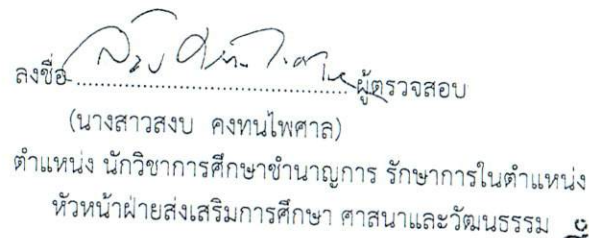 ลงชื่อ.......................................ผู้ตรวจสอบ
(นางสาวสงบ คงทนไพศาล)
ตำแหน่ง นักวิชาการศึกษาชำนาญการ รักษาการในตำแหน่ง
หัวหน้าฝ่ายส่งเสริมการศึกษา ศาสนาและวัฒนธรรม